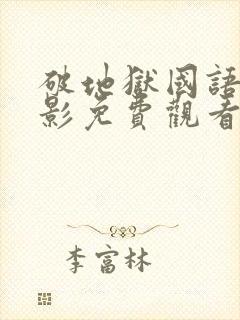 破地獄國語
影免費觀看
李富林